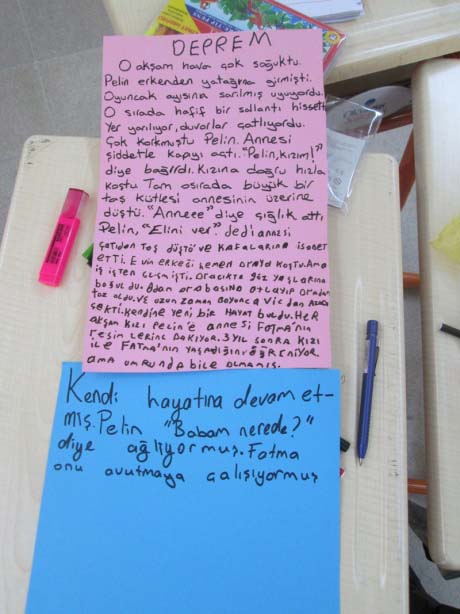 DEPREM
O akşam hava çok soğuktu.
Pelin erkenden yatağına girmişti.
Oyuncak ayısına sarılmış uyuyordu.
O sırada hafif bir sallantı hissetti
Yer yarılıyor, duvarlar çatlıyordu.
Çok korkmuştu Pelin. Annesi
şiddetle kapıyı açtı. "Pelin, kızım!"
diye bağırdı. Kızına doğru hızla
koştu Tam o sırada büyük bir
taş kütlesi annesinin üzerine
düştü. "Anneee" diye çığlık attı
Pelin, "Elini ver." dedi annesi
çatıdan taş düştü ve kafalarına isabet
etti. Evin erkeği hemen oraya koştu. Ama
iş işten geçmişti. Oracıkta göz yaşlarına
boğuldu. Adam arabasına atlayıp oradan
toz oldu. Ve uzun zaman boyunca vicdan azabı
çekti. Kendine yeni bir hayat buldu. Her
akşam kızı Pelin'e annesi Fatma'nın
resimlerine bakıyor. 3 yıl sonra kızı
ile Fatma'nın yaşadığını öğreniyor.
ama umrunda bile olmamış.
Kendi hayatına devam et-
miş. Pelin "Babam nerede?"
diye ağlıyormuş. Fatma
onu avutmaya çalışıyormuş